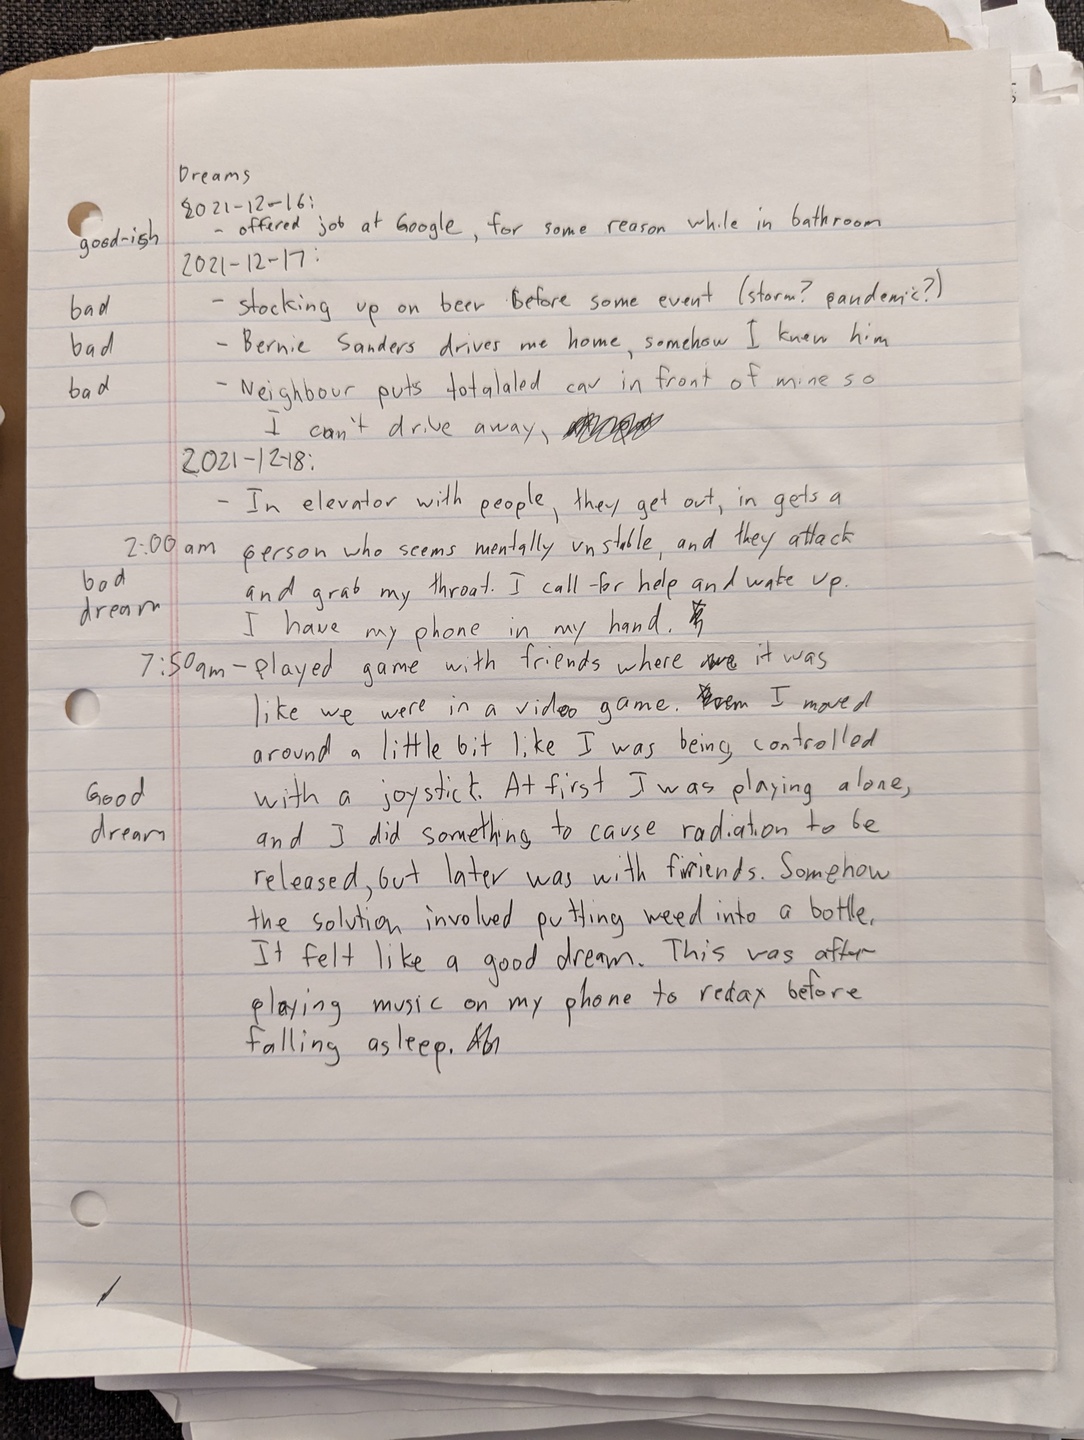 Dreams
2021-12-16:
good-ish - offered job at Google, for some reason while in bathroom
2021-12-17:
bad - stocking up on beer before some event (storm? pandemic?)
bad - Bernie Sanders drives me home, somehow I knew him
bad - Neighbour puts totalaled car in front of mine so
I can't drive away,
2021-12-18:
- In elevator with people, they get out, in gets a
2:00 am person who seems mentally unstable, and they attack
bad and grab my throat. I call for help and wake up.
dream I have my phone in my hand.
7:50am - Played game with friends where it was
like we were in a video game. I moved
around a little bit like I was being controlled
Good with a joystick. At first I was playing alone,
dream and I did something to cause radiation to be
released, but later was with friends. Somehow
the solution involved putting weed into a bottle.
It felt like a good dream. This was after
playing music on my phone to relax before
falling asleep.